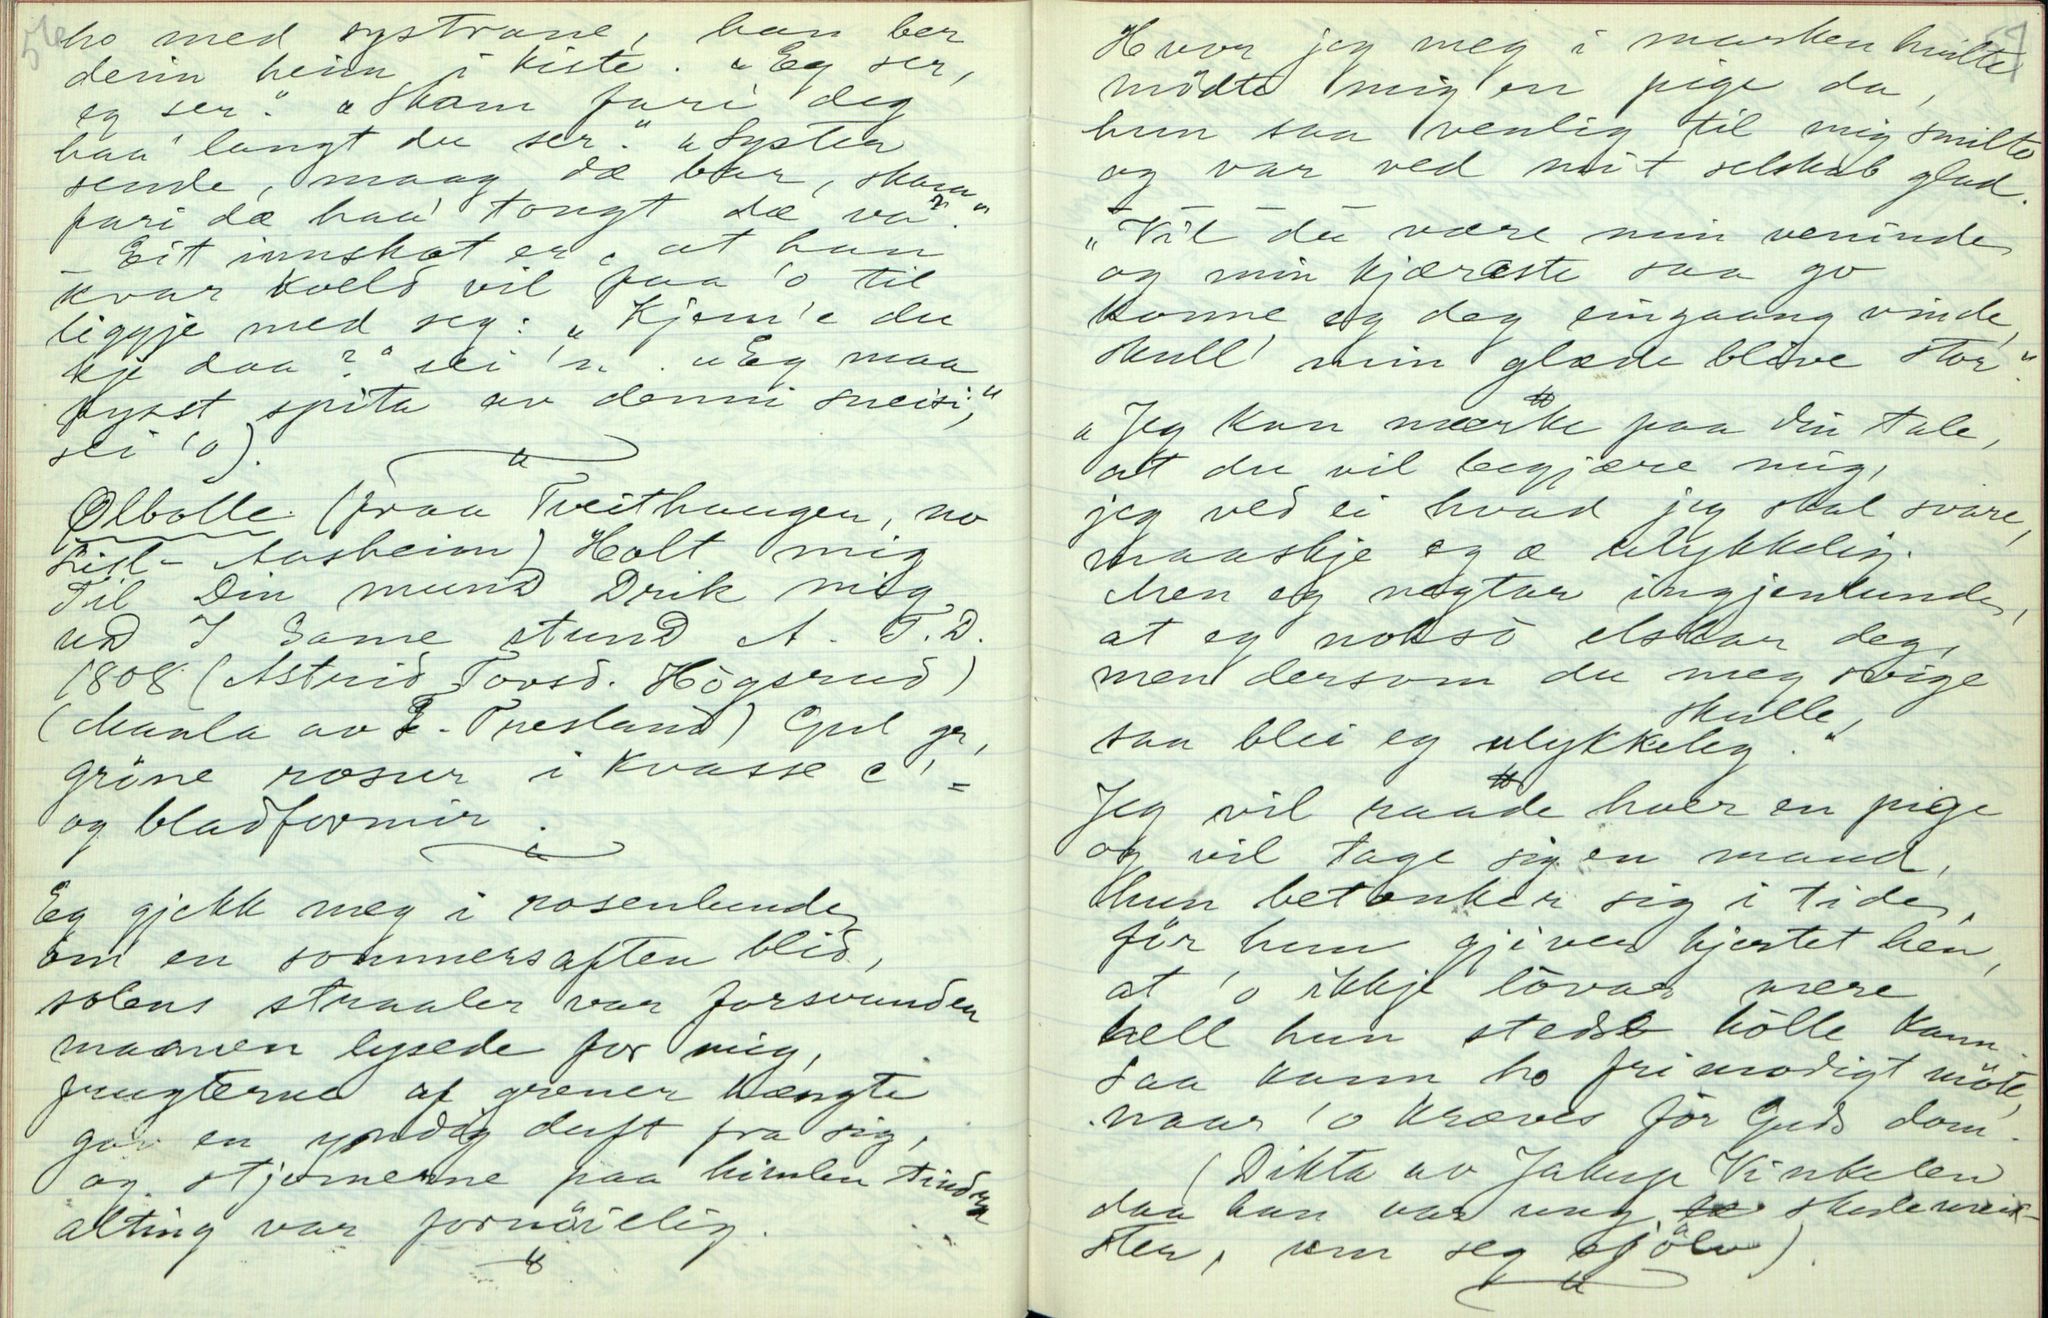 56
ho med systrane, han ber
denn heim i kiste. "Eg ser,
eg ser." "Skam fari deg
haa' langt du ser." "Syster
sende, maag dæ bar, skam
fari dæ haa' tongt dæ va'."
Eit innskot er, at han
kvar kveld vil faa 'o til
liggje med seg: "Kjem'e du
kje daa?" sei 'n. "Eg maa
fysst spita av denni sneisi,"
sei 'o).
Ølbolle (fraa Tveithaugen, no
Lisl-Aasheim) Holt mig
Til Din mund Drik mig
ud I Same stund A. T.D.
1808 (Astrid Tovsd. Høgsrud)
(Maala av T. Tresland) Gul gr,
gröne rosur i kvasse c'=
og bladformir.
Eg gjekk meg i rosenlunde
om en sommersaften blid,
solens straaler var forsvunden
maanen lysede for mig,
frugterne af grener hængte
gav en yndig duft fra sig,
og stjernerne paa himlen tindra
alting var fornöielig.
57
Hvor jeg meg i marken hvilte
mödte mig en pige da,
hun saa venlig til mig smilte
og var ved mit selskab glad.
"Vil du være min veninde
og min kjæreste saa go
konne eg deg eingaang vinde,
skull' min glæde blive stor."
"Jeg kan mærke paa din tale,
at du vil begjære mig,
jeg ved ei hvad jeg skal svare,
maaskje eg æ ulykkelig.
Men eg negtar ingjenlunde,
at eg noksö elskar deg,
men dersom du meg svige
skulle,
saa blei eg ulykkeleg."
Jeg vil raade hver en pige
og vil tage sig en mand,
hun betenker sig i tide,
för hun gjiver hjertet hen,
at 'o ikkje lovar mere
hell hun stedse hölle kann
saa kann ho frimodigt möte,
naar 'o kræves for Guds dom.
(Dikta av Jakup Vinkelen
daa han var ung skulemeis-
ster, um seg sjölv).